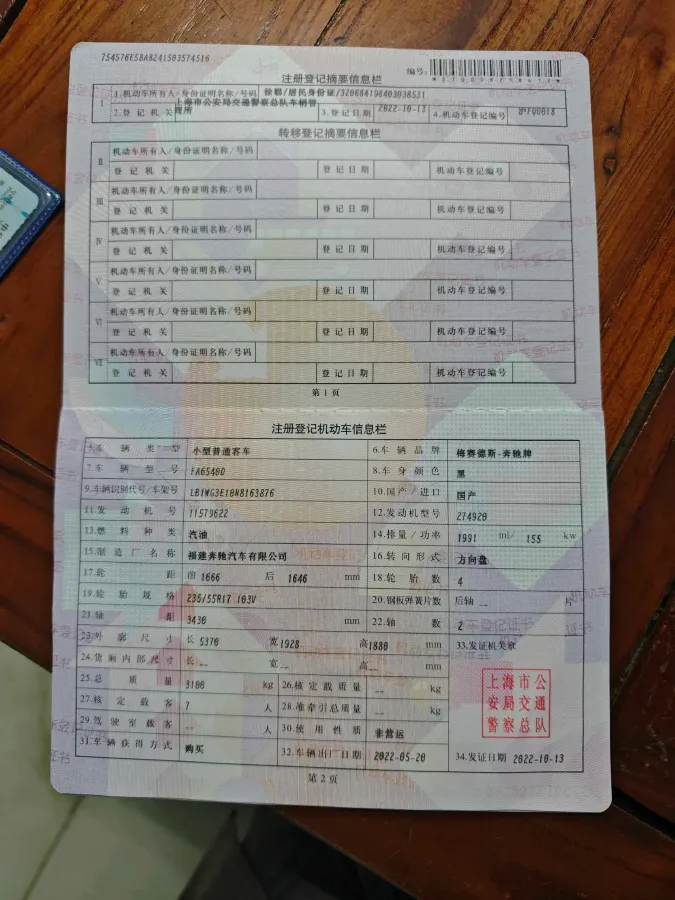 754576E5BA8241503574516
编号:
注册登记摘要信息栏
I 1.机动车所有人/身份证明名称/号码 徐聪/居民身份证/320684198403038531
2.登记机关 上海市公安局交通警察总队车辆管理所 3.登记日期 2022-10-13 4.机动车登记编号
转移登记摘要信息栏
II 机动车所有人/身份证明名称/号码
登记机关 登记日期 机动车登记编号
III 机动车所有人/身份证明名称/号码
登记机关 登记日期 机动车登记编号
IV 机动车所有人/身份证明名称/号码
登记机关 登记日期 机动车登记编号
V 机动车所有人/身份证明名称/号码
登记机关 登记日期 机动车登记编号
VI 机动车所有人/身份证明名称/号码
登记机关 登记日期 机动车登记编号
VII 机动车所有人/身份证明名称/号码
登记机关 登记日期 机动车登记编号
第1页
注册登记机动车信息栏
5.车辆类型 小型普通客车 6.车辆品牌 梅赛德斯-奔驰牌
7.车辆型号 FA6540D 8.车身颜色 黑
9.车辆识别代号/车架号 LB1WG3E18N8163876 10.国产/进口 国产
11.发动机号 11579622 12.发动机型号 274920
13.燃料种类 汽油 14.排量/功率 1991 ml/ 155 kw
15.制造厂名称 福建奔驰汽车有限公司 16.转向形式 方向盘
17.轮距 前 1666 后 1646 mm 18.轮胎数 4
19.轮胎规格 235/55R17 103V 20.钢板弹簧片数 后轴 -- 片
21.轴距 3430 mm 22.轴数 2
23.外廓尺寸 长 5370 宽 1928 高 1880 mm 33.发证机关章
24.货厢内部尺寸 长 -- 宽 -- 高 -- mm
25.总质量 3100 kg 26.核定载质量 -- kg
27.核定载客 7 人 28.准牵引总质量 -- kg
29.驾驶室载客 -- 人 30.使用性质 非营运
31.车辆获得方式 购买 32.车辆出厂日期 2022-05-20 34.发证日期 2022-10-13
上海市公
安局交通
警察总队
第2页